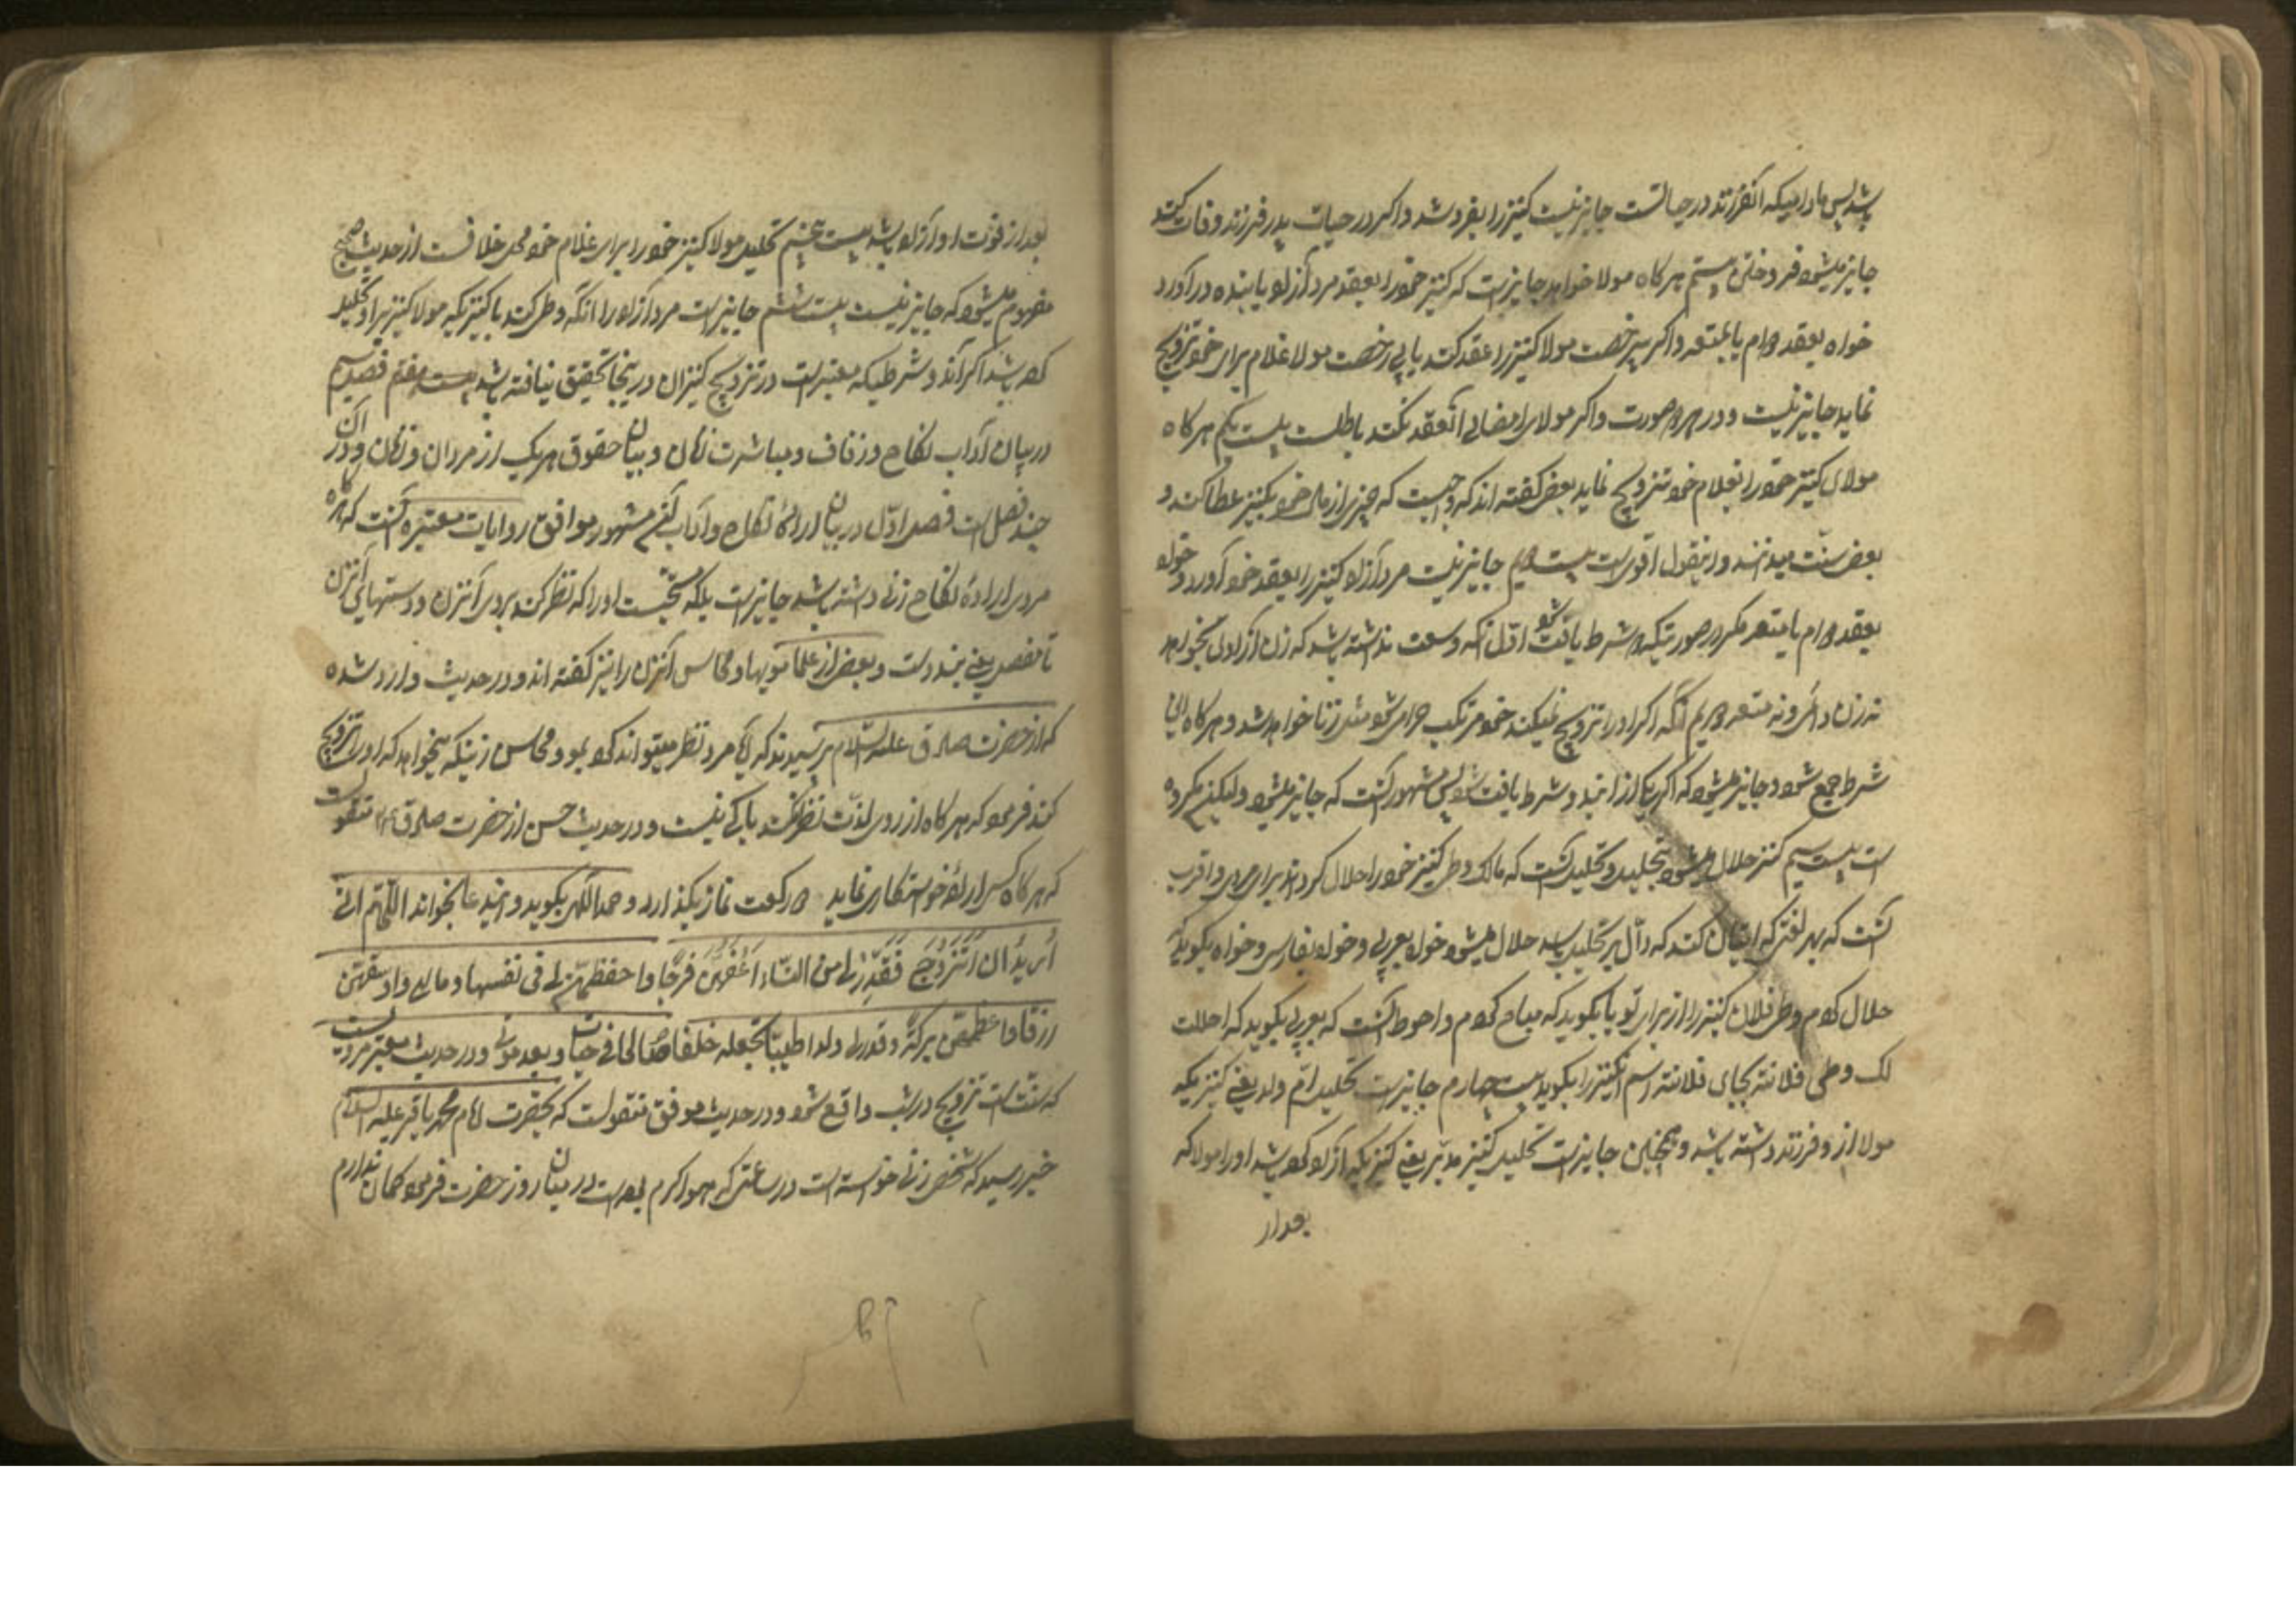 باشد پس مادامیکه آنفرزند در حیاتست جایز نیست کنیز را بفروشد و اگر در حیات پدر فرزند وفات کند
جایز میشود فروختن بیستم هرگاه مولا خواهد جایزست که کنیز خود را بعقد مرد آزاد یا بنده درآورد
خواه بعقد دوام یا بمتعه و اگر بیرخصت مولا کنیز را عقد کند یا بی رخصت مولا غلام برای خود تزویج
نماید جایز نیست و در هر دو صورت و اگر مولای امضای آنعقد نکند باطلست بیست یکم هرگاه
مولای کنیز خود را بغلام خود تزویج نماید بعضی گفته اند که واجبست که چیزی از مال خود بکنیز عطا کند و
بعضی سنت میدانند و اینقول اقویست بیست دویم جایز نیست مرد آزاد کنیز را بعقد خود آورد خواه
بعقد دوام یا متعه مگر در صورتیکه دو شرط یافت شود اول آنکه وسعت نداشته باشد که زن آزادی بخواهد
نه زن دائمی و نه متعه دویم آنکه اگر او را تزویج نمیکند خود مرتکب حرامی شود مثل زنا خواهد شد و هرگاه این
شرط جمع شود جایز میشود که اگر یکی از ایندو شرط یافت نشود پس مشهور آنست که جایز میشود ولیکن مکروه
است بیست سیم کنیز حلال میشود بتحلیل و تحلیل آنست که مالک وطی کنیز خود را حلال گرداند برای مردی و اقرب
آنست که بهر لفتی که اتیان کند که دال بر تحلیل باشد حلال میشود خواه بعربی و خواه بفارسی و خواه بگوید
حلال کردم وطی فلان کنیز را از برای تو یا بگوید که مباح کردم و احوط آنست که بعربی بگوید که احللت
لک وطی فلانته بجای فلانته اسم آنکنیز را بگوید بیست چهارم جایزست تحلیل ام ولد یعنی کنیزیکه
مولا از او فرزند داشته باشد و همچنین جایزست تحلیل کنیز مدبر یعنی کنیزیکه آزاد کرده باشد او را مولا که
بعد از
بعد از فوت او آزاد باشد بیست پنجم تحلیل مولا کنیز خود را برای غلام خود محل خلافست از حدیث صحیح
مفهوم میشود که جایز نیست بیست ششم جایزست مرد آزاد را آنکه وطی کند با کنیزیکه مولا کنیز بر او تحلیل
کرده باشد اگر آندو شرطیکه معتبرست در تزویج کنیزان در اینجا تحقق نیافته باشد بیست هفتم فصل سیم
در بیان آداب نکاح و زفاف و مباشرت زنان و بیان حقوق هریک از مردان و زنان و در آن
چند فصل است فصل اول در بیان اراده نکاح و آداب آنهم مشهور موافق روایات معتبره آنست که هرگاه
مردی اراده نکاح زنی داشته باشد جایزست بلکه مستحبست او را که نظر کند بروی آنزن و دستهای آنزن
تا مفصل یعنی بند دست و بعضی از علما مویها و محاسن آنزن را نیز گفته اند و در حدیث وارد شده
که از حضرت صادق علیه السلام پرسیدند که آیا مرد نظر میتواند کرد بمو و محاسن زنیکه میخواهد که او را تزویج
کند فرمود که هرگاه از روی لذت نظر نکند باکی نیست و در حدیث حسن از حضرت صادق منقولست
که هرگاه کسی اراده خواستکاری نماید دو رکعت نماز بگذارد و حمد الهی بگوید و ایندعا بخواند اللهم انی
أرید ان أتزوج فقدر لی من النساء اعفهن فرجا و احفظهن لی فی نفسها و مالی و اوسعهن
رزقا و اعظمهن برکة و قدر لی ولدا طیبا تجعله خلفا صالحا فی حیاتی و بعد موتی و در حدیث معتبر مرویست
که سنت است تزویج در شب واقع شود و در حدیث موفق منقولست که بحضرت امام محمد باقر علیه السلام
خبر رسید که شخصی زنی خواسته است در ساعتی که هوا گرم بوده است در میان روز حضرت فرمود گمان ندارم